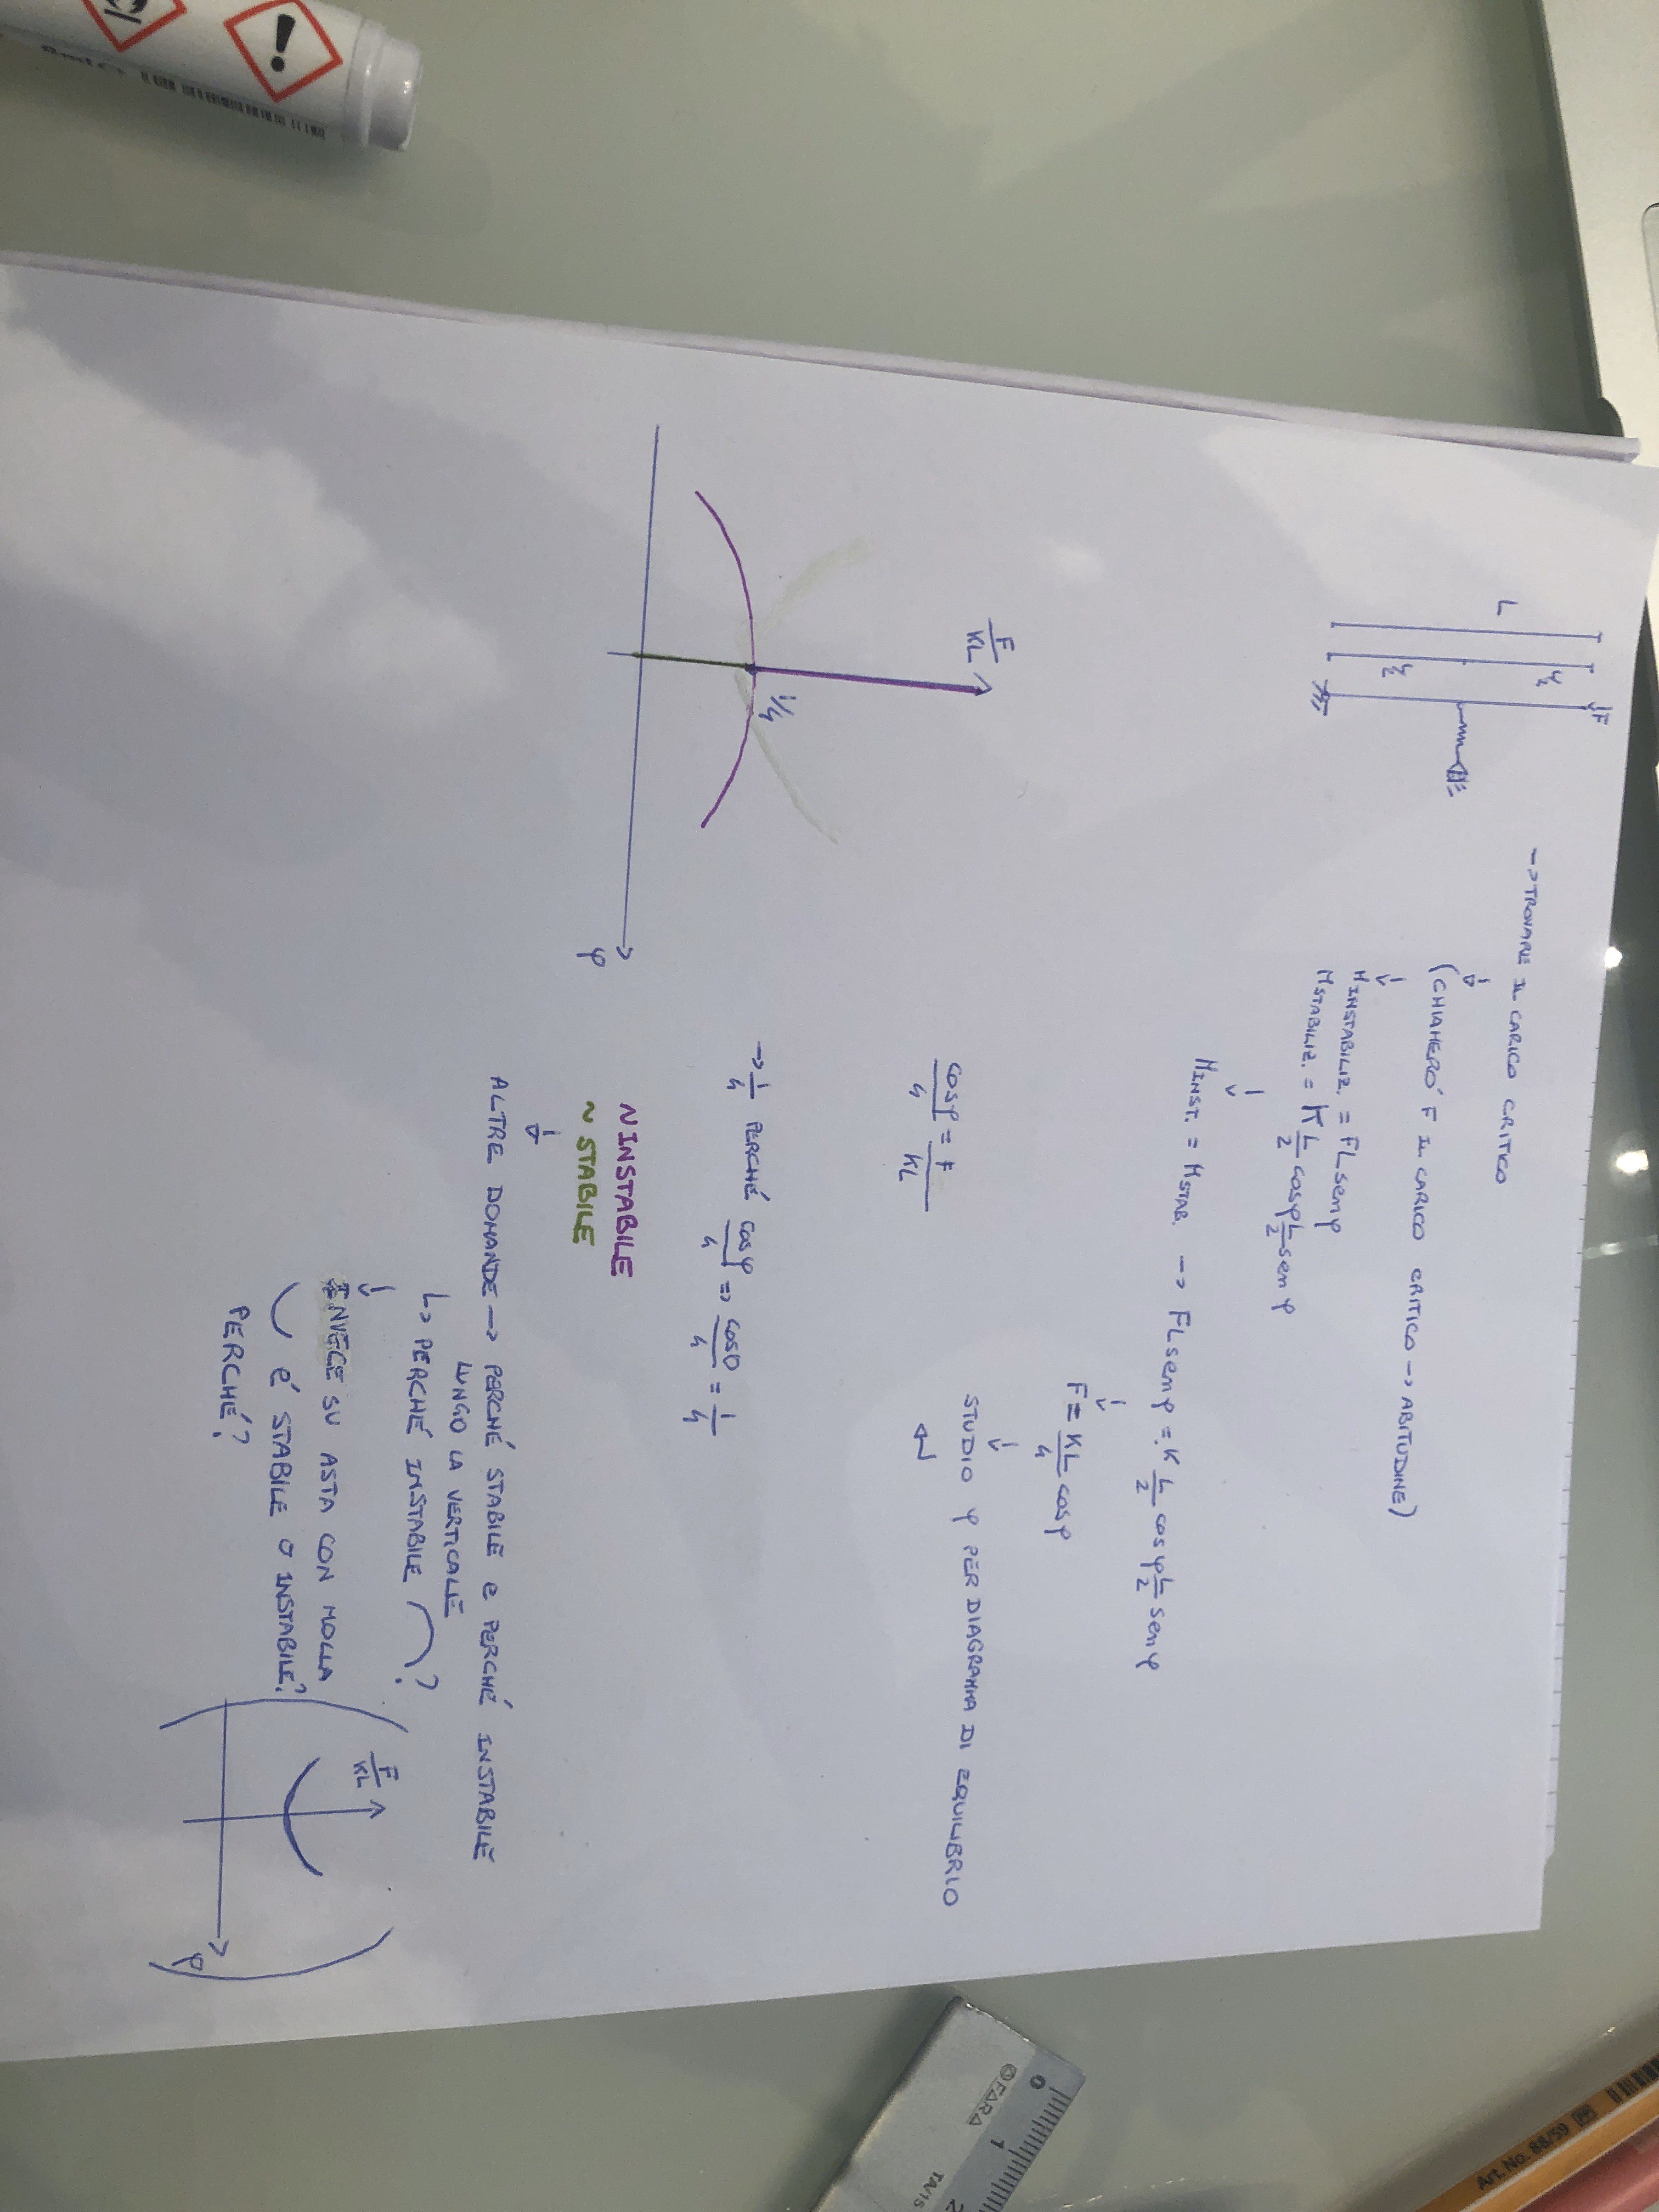 L
L/2
L/2
F
-> TROVARE IL CARICO CRITICO
(CHIAMERÓ F IL CARICO CRITICO -> ABITUDINE)
MINSTABILIZ. = FLsenφ
MSTABILIZ. = K L/2 cosφ L/2 senφ
MINST. = MSTAB. -> FLsenφ = K L/2 cosφ L/2 senφ
F = KL/4 cosφ
STUDIO φ PER DIAGRAMMA DI EQUILIBRIO
cosφ/4 = F/KL
F/KL
1/4
φ
-> 1/4 PERCHÉ cosφ/4 => cos0/4 = 1/4
~ INSTABILE
~ STABILE
ALTRE DOMANDE -> PERCHÉ STABILE e PERCHÉ INSTABILE
LUNGO LA VERTICALE
L> PERCHÉ INSTABILE ?
INVECE SU ASTA CON MOLLA
É STABILE O INSTABILE?
PERCHÉ?
F/KL
φ
OFARA
0 1 2
TA/15
Art. No. 88/59